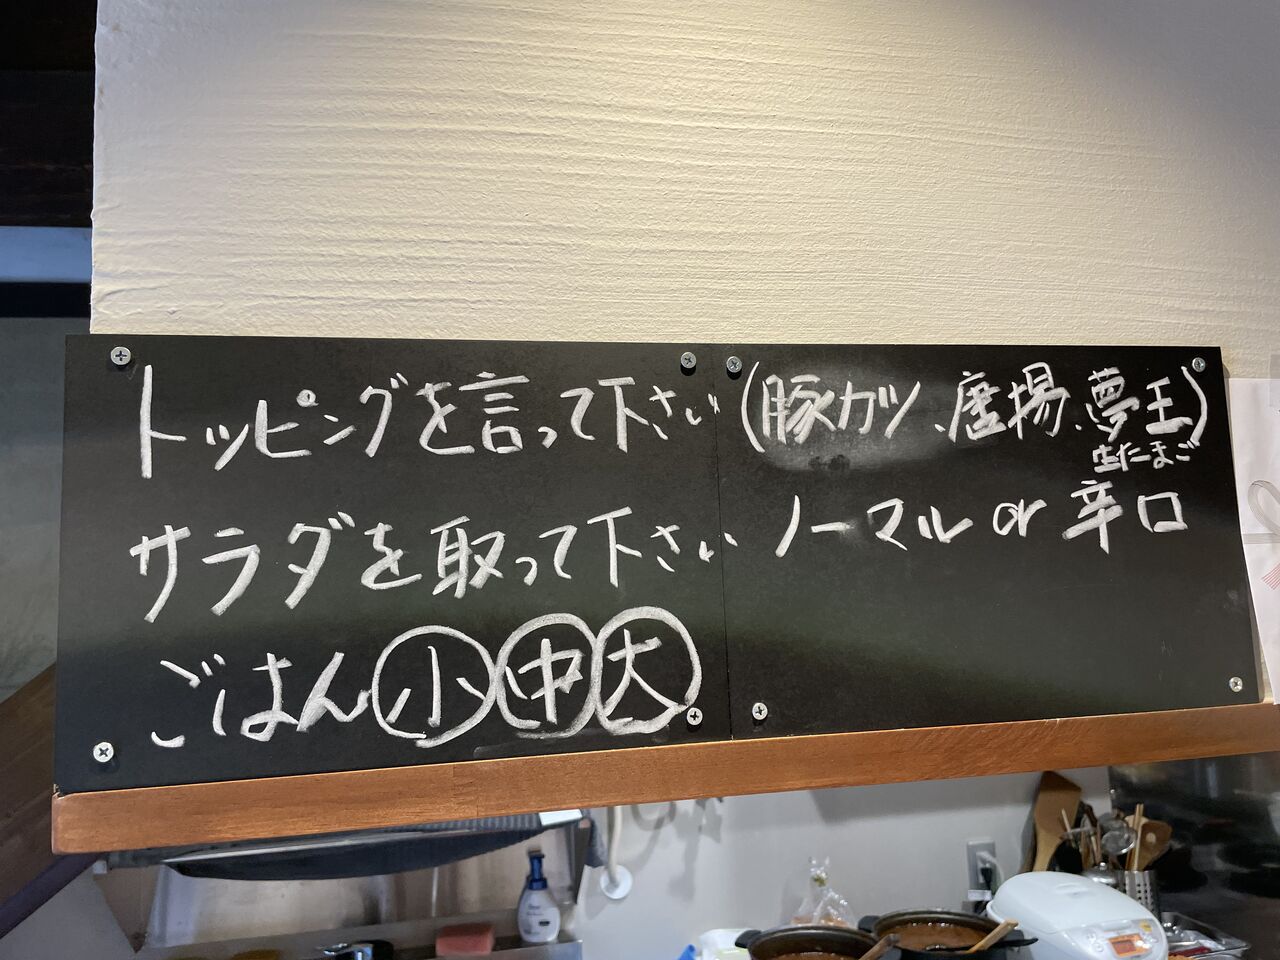 トッピングを言って下さい (豚カツ、唐揚、夢王)
生たまご
サラダを取って下さい ノーマル or 辛口
ごはん 小 中 大